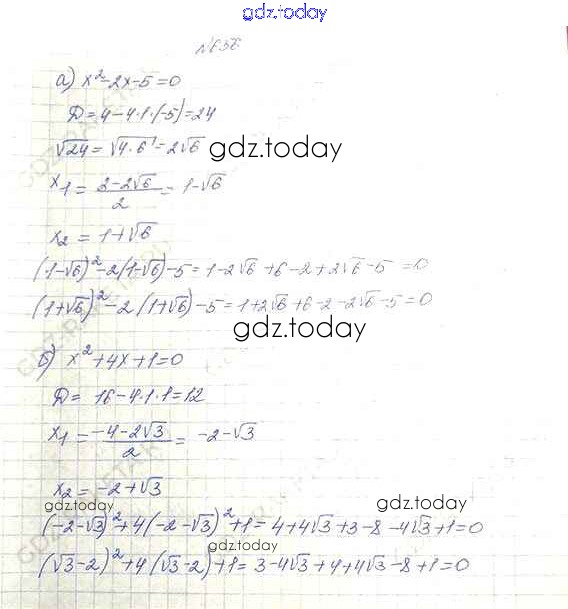 gdz.today
№656
а) x²-2x-5=0
D=4-4·1·(-5)=24
√24=√4·6=2√6
gdz.today
x₁=(2-2√6)/2=1-√6
x₂=1+√6
(1-√6)²-2(1-√6)-5=1-2√6+6-2+2√6-5=0
(1+√6)²-2(1+√6)-5=1+2√6+6-2-2√6-5=0
gdz.today
б) x²+4x+1=0
D=16-4·1·1=12
x₁=(-4-2√3)/2=-2-√3
x₂=-2+√3
gdz.today gdz.today
(-2-√3)²+4(-2-√3)²+1=4+4√3+3-8-4√3+1=0
gdz.today
(√3-2)²+4(√3-2)+1=3-4√3+4+4√3-8+1=0